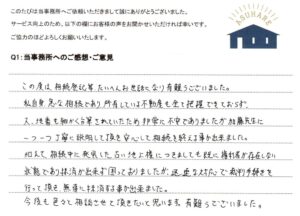 このたびは当事務所へご依頼いただきまして誠にありがとうございました。
サービス向上のため、以下の欄にお客様の声をお聞かせいただければ幸いです。
ご協力のほどよろしくお願いいたします。
ASUHARE
Q1:当事務所へのご感想・ご意見
この度は相続登記等たいへんお世話になり有難うございました。
私自身急な相続であり所有している不動産も全て把握できておらず、
又、地番も細かく分筆されていたため非常に不安でありましたが
一つ一つ丁寧に説明して頂き安心して相続を終える事が出来ました。
加えて、相続中に発覚した古い地上権につきましても既に権利者が存在しない
状態であり抹消が出来ず困っておりましたが、迅速な対応で裁判手続きを
行って頂き、無事に抹消する事が出来ました。
今後も色々と相談させて頂きたいと思います。有難うございました。